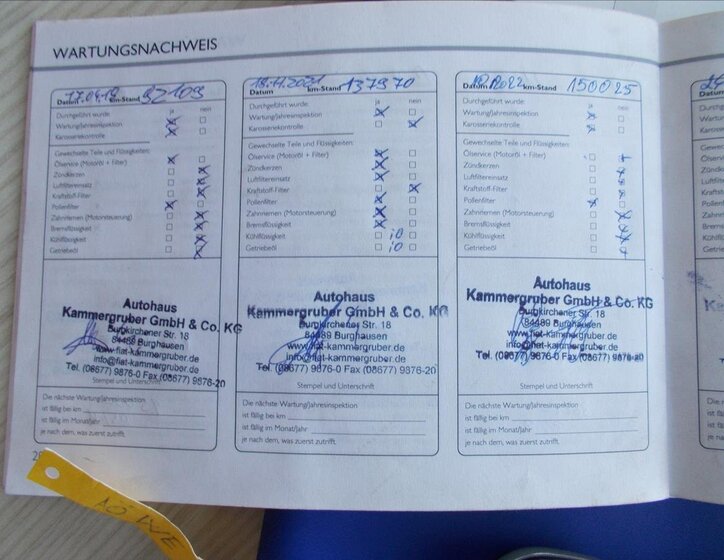 WARTUNGSNACHWEIS
17.04.19 92109
Datum km-Stand
Durchgeführt wurde: ja nein
Wartung/Jahresinspektion
Karosseriekontrolle
Gewechselte Teile und Flüssigkeiten:
Ölservice (Motoröl + Filter)
Zündkerzen
Luftfiltereinsatz
Kraftstoff-Filter
Pollenfilter
Zahnriemen (Motorsteuerung)
Bremsflüssigkeit
Kühlflüssigkeit
Getriebeöl
Autohaus
Kammergruber GmbH & Co. KG
Burgkirchener Str. 18
84489 Burghausen
www.fiat-kammergruber.de
info@fiat-kammergruber.de
Tel. (08677) 9876-0 Fax (08677) 9876-20
Stempel und Unterschrift
Die nächste Wartung/Jahresinspektion
ist fällig bei km
ist fällig im Monat/Jahr
je nach dem, was zuerst zutrifft.
18.11.2021 137970
Datum km-Stand
Durchgeführt wurde: ja nein
Wartung/Jahresinspektion
Karosseriekontrolle
Gewechselte Teile und Flüssigkeiten:
Ölservice (Motoröl + Filter)
Zündkerzen
Luftfiltereinsatz
Kraftstoff-Filter
Pollenfilter
Zahnriemen (Motorsteuerung)
Bremsflüssigkeit
Kühlflüssigkeit i0
Getriebeöl i0
Autohaus
Kammergruber GmbH & Co. KG
Burgkirchener Str. 18
84489 Burghausen
www.fiat-kammergruber.de
info@fiat-kammergruber.de
Tel. (08677) 9876-0 Fax (08677) 9876-20
Stempel und Unterschrift
Die nächste Wartung/Jahresinspektion
ist fällig bei km
ist fällig im Monat/Jahr
je nach dem, was zuerst zutrifft.
2022 150025
Datum km-Stand
Durchgeführt wurde: ja nein
Wartung/Jahresinspektion
Karosseriekontrolle
Gewechselte Teile und Flüssigkeiten:
Ölservice (Motoröl + Filter)
Zündkerzen
Luftfiltereinsatz
Kraftstoff-Filter
Pollenfilter
Zahnriemen (Motorsteuerung)
Bremsflüssigkeit
Kühlflüssigkeit
Getriebeöl
Autohaus
Kammergruber GmbH & Co. KG
Burgkirchener Str. 18
84489 Burghausen
www.fiat-kammergruber.de
info@fiat-kammergruber.de
Tel. (08677) 9876-0 Fax (08677) 9876-20
Stempel und Unterschrift
Die nächste Wartung/Jahresinspektion
ist fällig bei km
ist fällig im Monat/Jahr
je nach dem, was zuerst zutrifft.